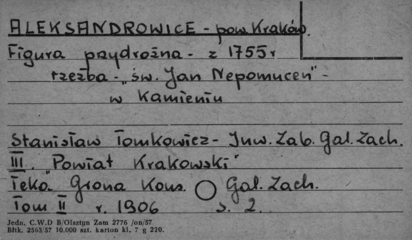 ALEKSANDROWICE - pow. Kraków.
Figura przydrożna - z 1755 r
rzeźba - "św. Jan Nepomucen" -
w kamieniu
Stanisław Tomkowicz - Inw. Zab. Gal. Zach.
III. "Powiat Krakowski"
Teka Grona Kons. Gal. Zach.
Tom II r. 1906 s. 2.
Jedn. C.W.D B/Olsztyn Zam 2776 /on/57.
Bltk. 2363/57 10.000 szt. karton kl. 7 g 220.